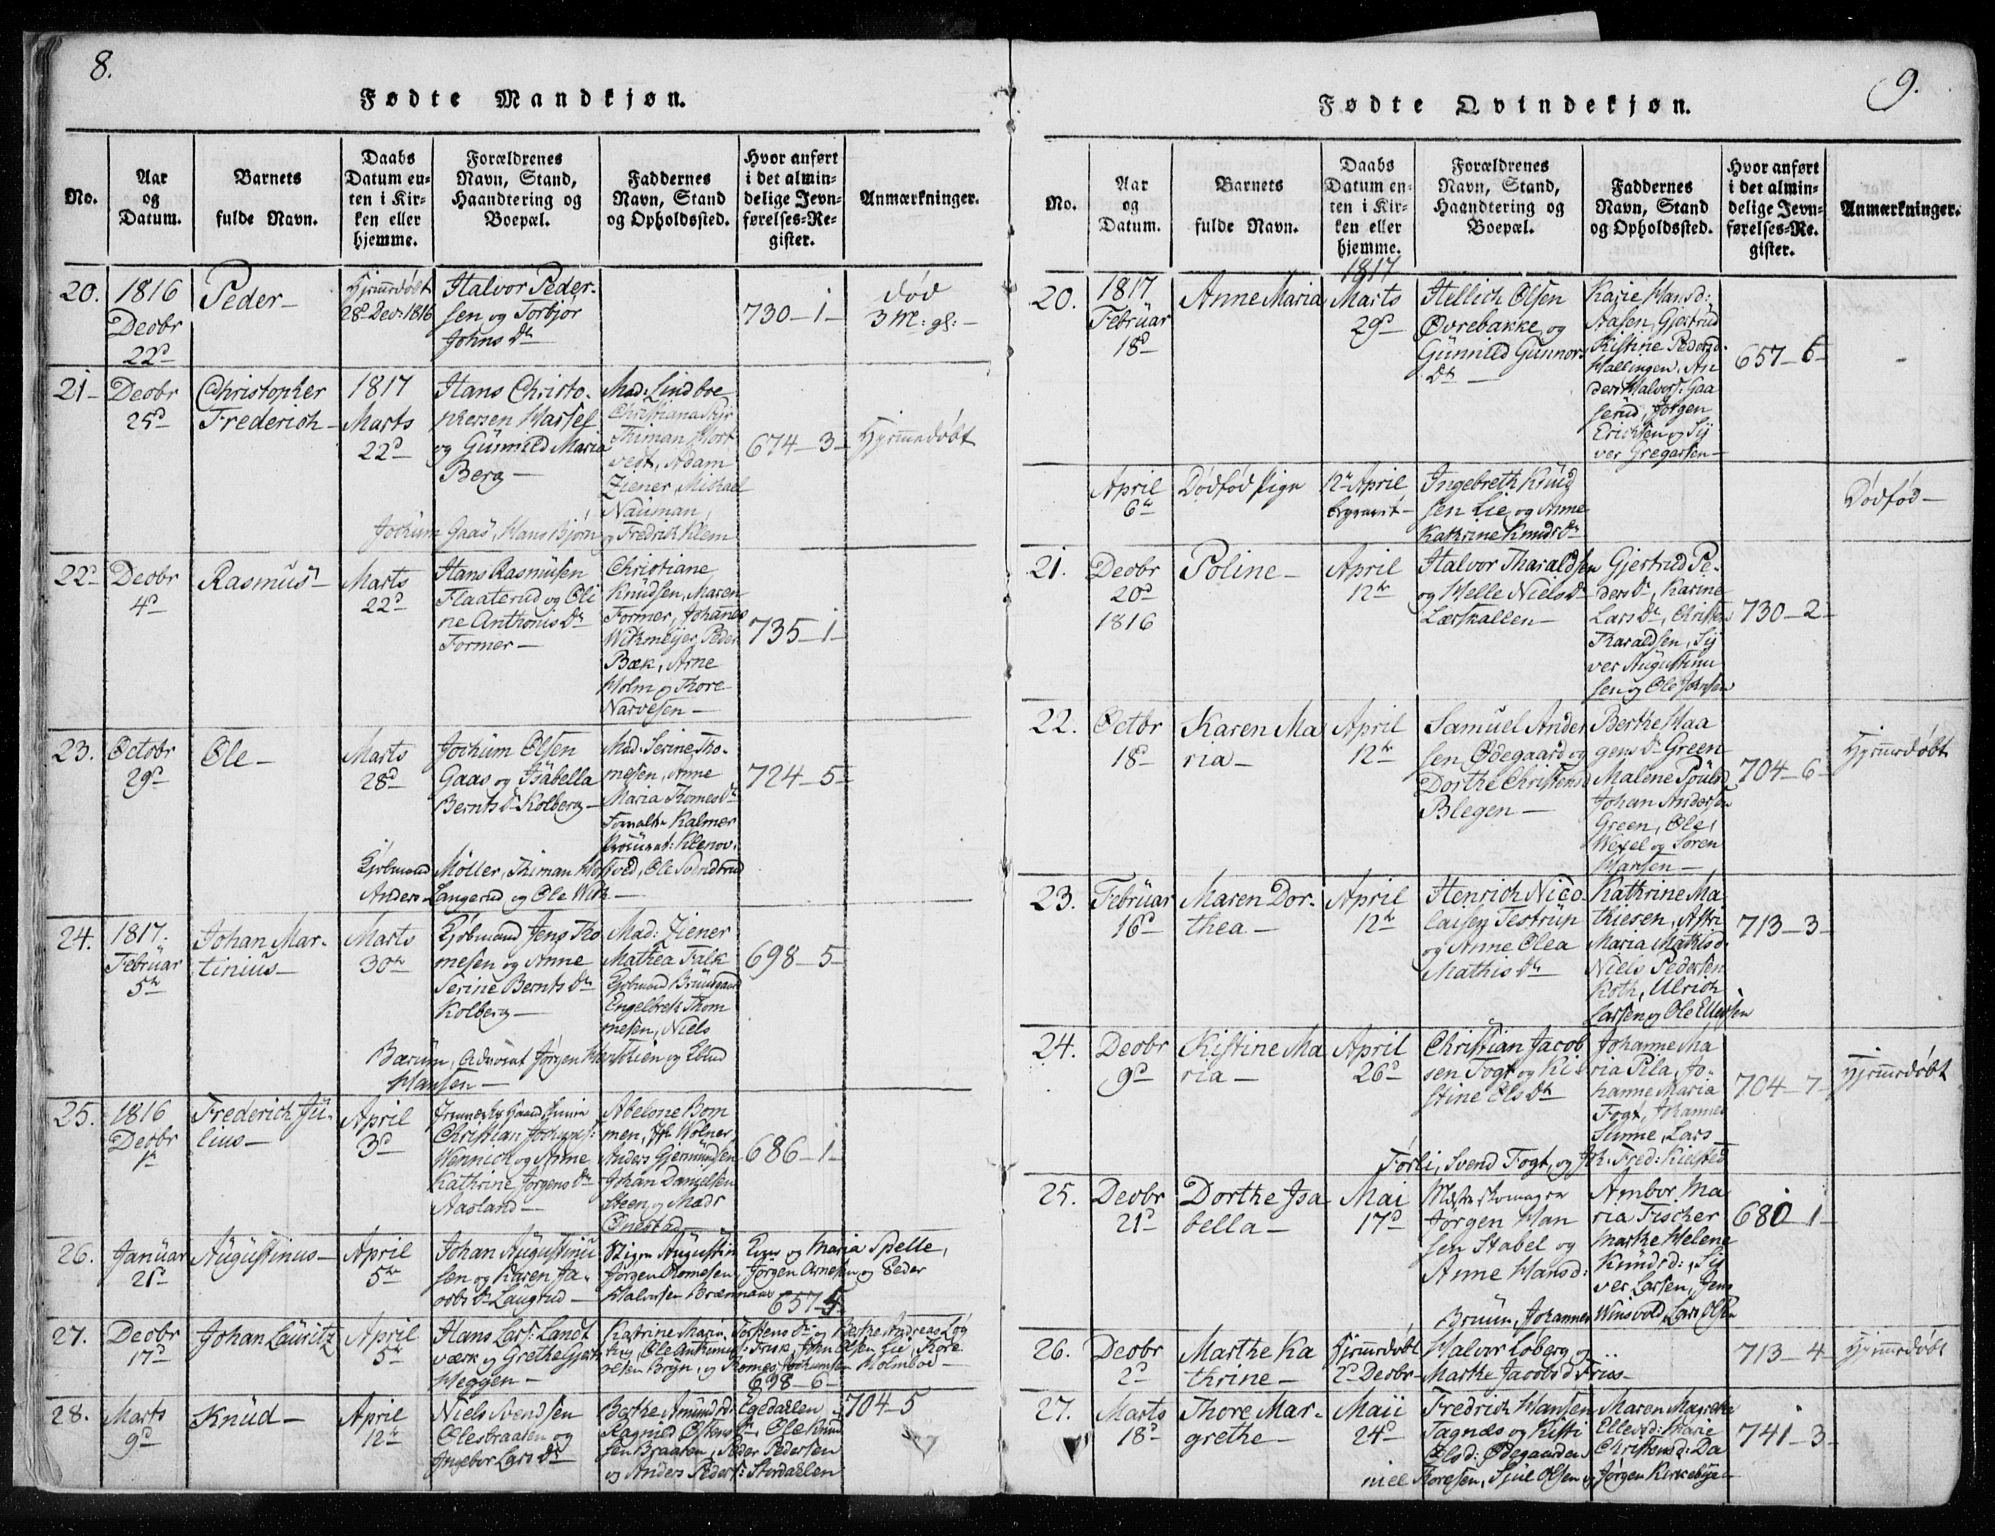 8.
Fødte Mandkjøn.
No.
Aar og Datum.
Barnets fulde Navn.
Daabs Datum enten i Kirken eller hjemme.
Forældrenes Navn, Stand, Haandtering og Boepæl.
Faddernes Navn, Stand og Opholdssted.
Hvor anført i det almindelige Jevnførelses-Register.
Anmærkninger.
20.
1816
Decbr
22d
Peder
Hjemdøbt
28d Dec: 1816
Halvor Peder-
sen og Torbjør
Johns Dr
730-1-
død
3 M: gl:
21
Decbr
25d
Christopher
Frederich
1817
Marts
22d
Hans Christo-
phersen Hassel
og Günnild Maria
Berg
Mad: Lindboe
Christiana
Thiman
Adam
Ziener, Michael
Nauman,
Jochum Gaas, Hans Bjørn,
og Fredrich Klem
674-3-
Hjemdøbt
22d
Decbr
4d
Rasmus
Marts
22d
Hans Rasmüsen
Flaaterud og Oli
ne Anthonis Dr
Former
Christiane
Knudsen, Maren
Former, Johanes
Witkmeijer, Peder
Bæk, Arne
Holm og Thore
Narvesen
735-1-
23.
Octobr
29d
Ole
Marts
28d
Jochum Olsen
Gaas og Isabella
Bernts Dr Kolberg
Mad: Serine Tho-
mesen, Anne
Maria Thomes Dr
Kalmer
Klenov:
Kjøbmand Møller, Thiman
Anders Langerud og Ole With
724-5-
24.
1817.
Februar
5te
Johan Mar-
tinius
Marts
30te
Kjøbmand Jens Tho
mesen og Anne
Serine Bernts Dr
Kolberg
Mad: Ziener
Mathea Falk
Kjøbmand
Engelbrek Thom
mesen, Niels
Bærüm, Advocat Jørgen
og
Hansen
698-5-
25.
1816
Decbr
1te
Frederich Jü-
lius
April
3d
Christian Jochums:
Wennich og Anne
Kathrine Jørgens Dr
Aasland
Abelone Bom
men, Wolner,
Anders Gjermundsen
Johan Danielsen
Steen og Mads
686-1-
26.
Januar
21d
Augustinus
April
5te
Johan Augustinu
sen og Karen Ja-
cobs Dr Laugrud
og Maria Spelle,
Jørgen Thomesen, Jørgen Arnesen og Peder
Halvorsen
657-5
27.
Decbr
17d
Johan Lauritz
April
5te
Hans Lars: Landt
værk og Grethe
Heggen
698-6-
28.
Marts
9d
Knüd
April
12te
Niels Svendsen
Olesbraaten og
Ingebor Lars Dr
Berthe Amunds d: Egedahlen
Ragnild Ostens Dr, Ole Knud
sen Braaten, Peder Pedersen
og Anders Peders: Stordahlen
704-5
9.
Fødte Qvindekjøn.
No.
Aar og Datum.
Barnets fulde Navn.
Daabs Datum enten i Kirken eller hjemme.
Forældrenes Navn, Stand, Haandtering og Boepæl.
Faddernes Navn, Stand og Opholdssted.
Hvor anført i det almindelige Jevnførelses-Register.
Anmærkninger.
20.
1817
Februar
18d
Anne Maria
1817
Marts
29d
Hellich Olsen
Øvrebakke og
Günnild Gunnors
Dr
Karie Hansd:
Aasen, Gjertrud
Kistine Pedersd:
Hallingen, An
ders Halvors: Gaa
serud, Jørgen
Erichsen og Sij
ver Gregersen
657-6-
April
6te
Dødfød Pige
12te April
begravet
Ingebreth Knud
sen Lie og Anne
Kathrine Knuds Dr
Dødfød
21.
Decbr
20d
1816
Poline
April
12te
Halvor Tharaldsen
og Helle Niels Dr
Lærskallen
Gjertrud Pe-
ders Dr, Karine
Lars Dr, Christen
Tharaldsen, Sij
ver Augustinu
sen og Ole Johnsen
730-2-
22.
Octbr
18d
Karen Ma
ria
April
12te
Samuel Ander
sen Ødegaard og
Dorthe Christensd
Blegen
Berthe Haa
gens Dr Green
Malene Poulsd
Johan Andersen
Green, Ole
Wexel og Søren
Hansen
704-6-
Hjemdøbt
23.
Februar
16d
Maren Dor-
thea
April
12te
Henrich Nico
laisen Testrup
og Anne Olea
Mathis Dr
Kathrine Ma
thiesen, Astri
Maria Mathisd:
Niels Pedersen
Koth, Ulrich
Larsen og Ole Ellefsen
713-3-
24.
Decbr
9d
Kistine Ma
ria
April
26d
Christian Jacob
sen Fogt og Ki
stine Ols Dr
Johanne Ma
ria Pila, Jo-
hanne Maria
Fogt, Johannes
Sunne, Lars
Førli, Svend Fogt, og Joh: Fred: Kielsted
704-7-
Hjemdøbt
25.
Decbr
21d
Dorthe Isa
bella
Mai
17d
Mester Skomager
Jørgen Han
sen Stabel og
Anne Hansd:
Ambor Ma
ria Fischer
Marthe Helene
Knüdsd:, Sij
ver Larsen, Jens
Bruun, Johannes Winsvold, Lars Olsen
680-1-
26.
Decbr
2d
Marthe Ka
thrine
Hjemdøbt
2d Decbr
Halvor Loberg og
Marthe Jacobsd Friis
713-4-
Hjemdøbt
27.
Marts
18d
Thore Mar-
grethe
Maii
24d
Fredrich Hansen
Tagnæs og Kisti
Olsd: Ødegaarden
Maren Margrethe
Ellevsd: Marie
Christensd: Da
niel Thoresen, Sjul Olsen og Jørgen Kirkebye
741-3-